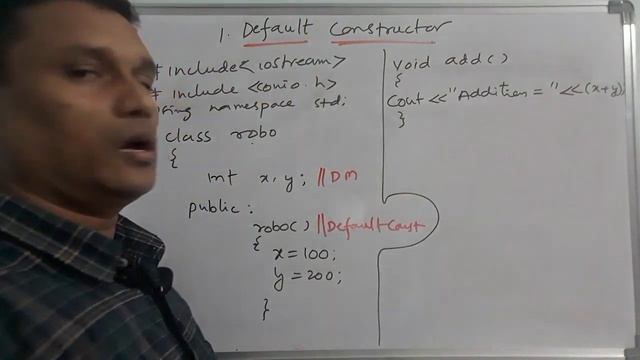 1. Default Constructor
# include<iostream>
# include <conio.h>
using namespace std;
class robo
{
int x, y; //DM
public:
robo() //DefaultConst
{
x=100;
y=200;
}
void add()
{
Cout<<"Addition="<<(x+y)
}